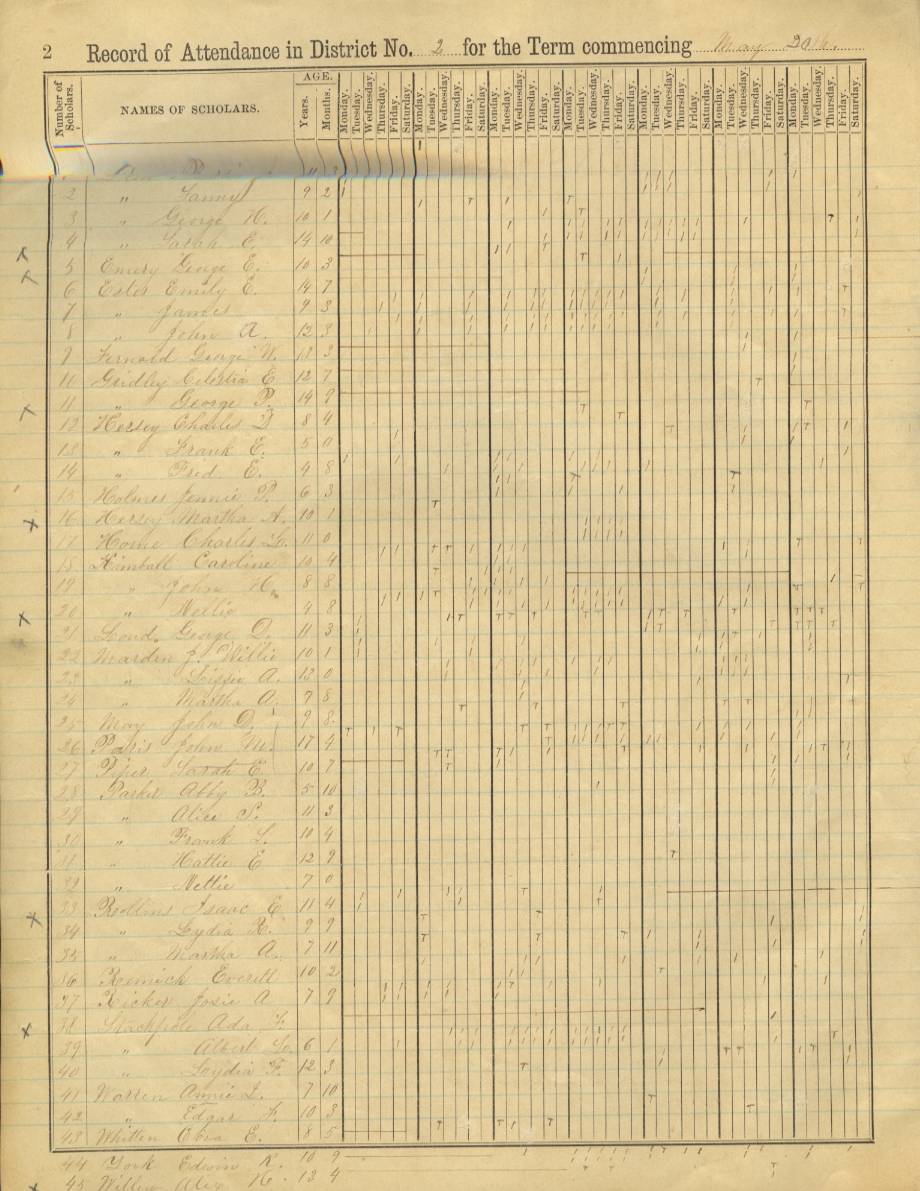 2 Record of Attendance in District No. 2 for the Term commencing May 20th.
Number of Scholars. NAMES OF SCHOLARS. AGE. Years. Months. Monday. Tuesday. Wednesday. Thursday. Friday. Saturday. Monday. Tuesday. Wednesday. Thursday. Friday. Saturday. Monday. Tuesday. Wednesday. Thursday. Friday. Saturday. Monday. Tuesday. Wednesday. Thursday. Friday. Saturday. Monday. Tuesday. Wednesday. Thursday. Friday. Saturday. Monday. Tuesday. Wednesday. Thursday. Friday. Saturday. Monday. Tuesday. Wednesday. Thursday. Friday. Saturday.
2 " Fanny 9 2
3 " George H. 10 1
4 " Sarah E. 14 10
5 Emery George E. 10 3
6 Estes Emily E. 14 7
7 " James 9 3
8 " John A. 12 3
9 Fernald George W. 13 3
10 Gridley Celestia E 12 7
11 " George P. 14 9
12 Hersey Charles D 8 4
13 " Frank E. 5 0
14 " Fred. E. 4 8
15 Holmes Jennie P. 6 3
16 Hersey Martha A. 10 1
17 Horne Charles L. 11 0
18 Kimball Caroline 10 4
19 " John H. 8 8
20 " Nellie 4 8
21 Loud George D. 11 3
22 Marden J. Willie 10 1
23 " Lizzie A. 13 0
24 " Martha A. 7 8
25 May John D. 9 8
26 Paris John M. 17 4
27 Piper Sarah E. 10 7
28 Parker Abby B. 5 10
29 " Alice S. 11 3
30 " Frank L. 10 4
31 " Hattie E 12 9
32 " Nettie 7 0
33 Rollins Isaac E 11 4
34 " Lydia R. 9 9
35 " Martha A. 7 11
36 Remick Everett 10 2
37 Ricker Josie A 7 9
38 Stackpole Ada F.
39 " Albert L. 6 1
40 " Lydia F. 12 3
41 Warren Annie L. 7 10
42 " Edgar F. 10 3
43 Whitten E. 8 5
44 York Edwin K. 10 9
45 Willey Alex 13 4